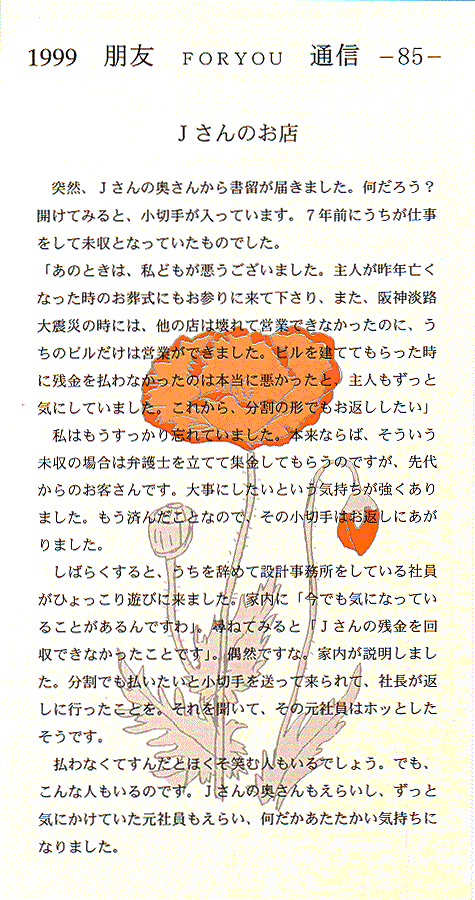 1999　朋友　FORYOU　通信　−85−
Ｊさんのお店
突然、Ｊさんの奥さんから書留が届きました。何だろう？
開けてみると、小切手が入っています。７年前にうちが仕事
をして未収となっていたものでした。
「あのときは、私どもが悪うございました。主人が昨年亡く
なった時のお葬式にもお参りに来て下さり、また、阪神淡路
大震災の時には、他の店は壊れて営業できなかったのに、う
ちのビルだけは営業ができました。ビルを建ててもらった時
に残金を払わなかったのは本当に悪かったと、主人もずっと
気にしていました。これから、分割の形でもお返ししたい」
私はもうすっかり忘れていました。本来ならば、そういう
未収の場合は弁護士を立てて集金してもらうのですが、先代
からのお客さんです。大事にしたいという気持ちが強くあり
ました。もう済んだことなので、その小切手はお返しにあが
りました。
しばらくすると、うちを辞めて設計事務所をしている社員
がひょっこり遊びに来ました。家内に「今でも気になってい
ることがあるんですわ」。尋ねてみると「Ｊさんの残金を回
収できなかったことです」。偶然ですな。家内が説明しまし
た。分割でも払いたいと小切手を送って来られて、社長が返
しに行ったことを。それを聞いて、その元社員はホッとした
そうです。
払わなくてすんだとほくそ笑む人もいるでしょう。でも、
こんな人もいるのです。Ｊさんの奥さんもえらいし、ずっと
気にかけていた元社員もえらい、何だかあたたかい気持ちに
なりました。